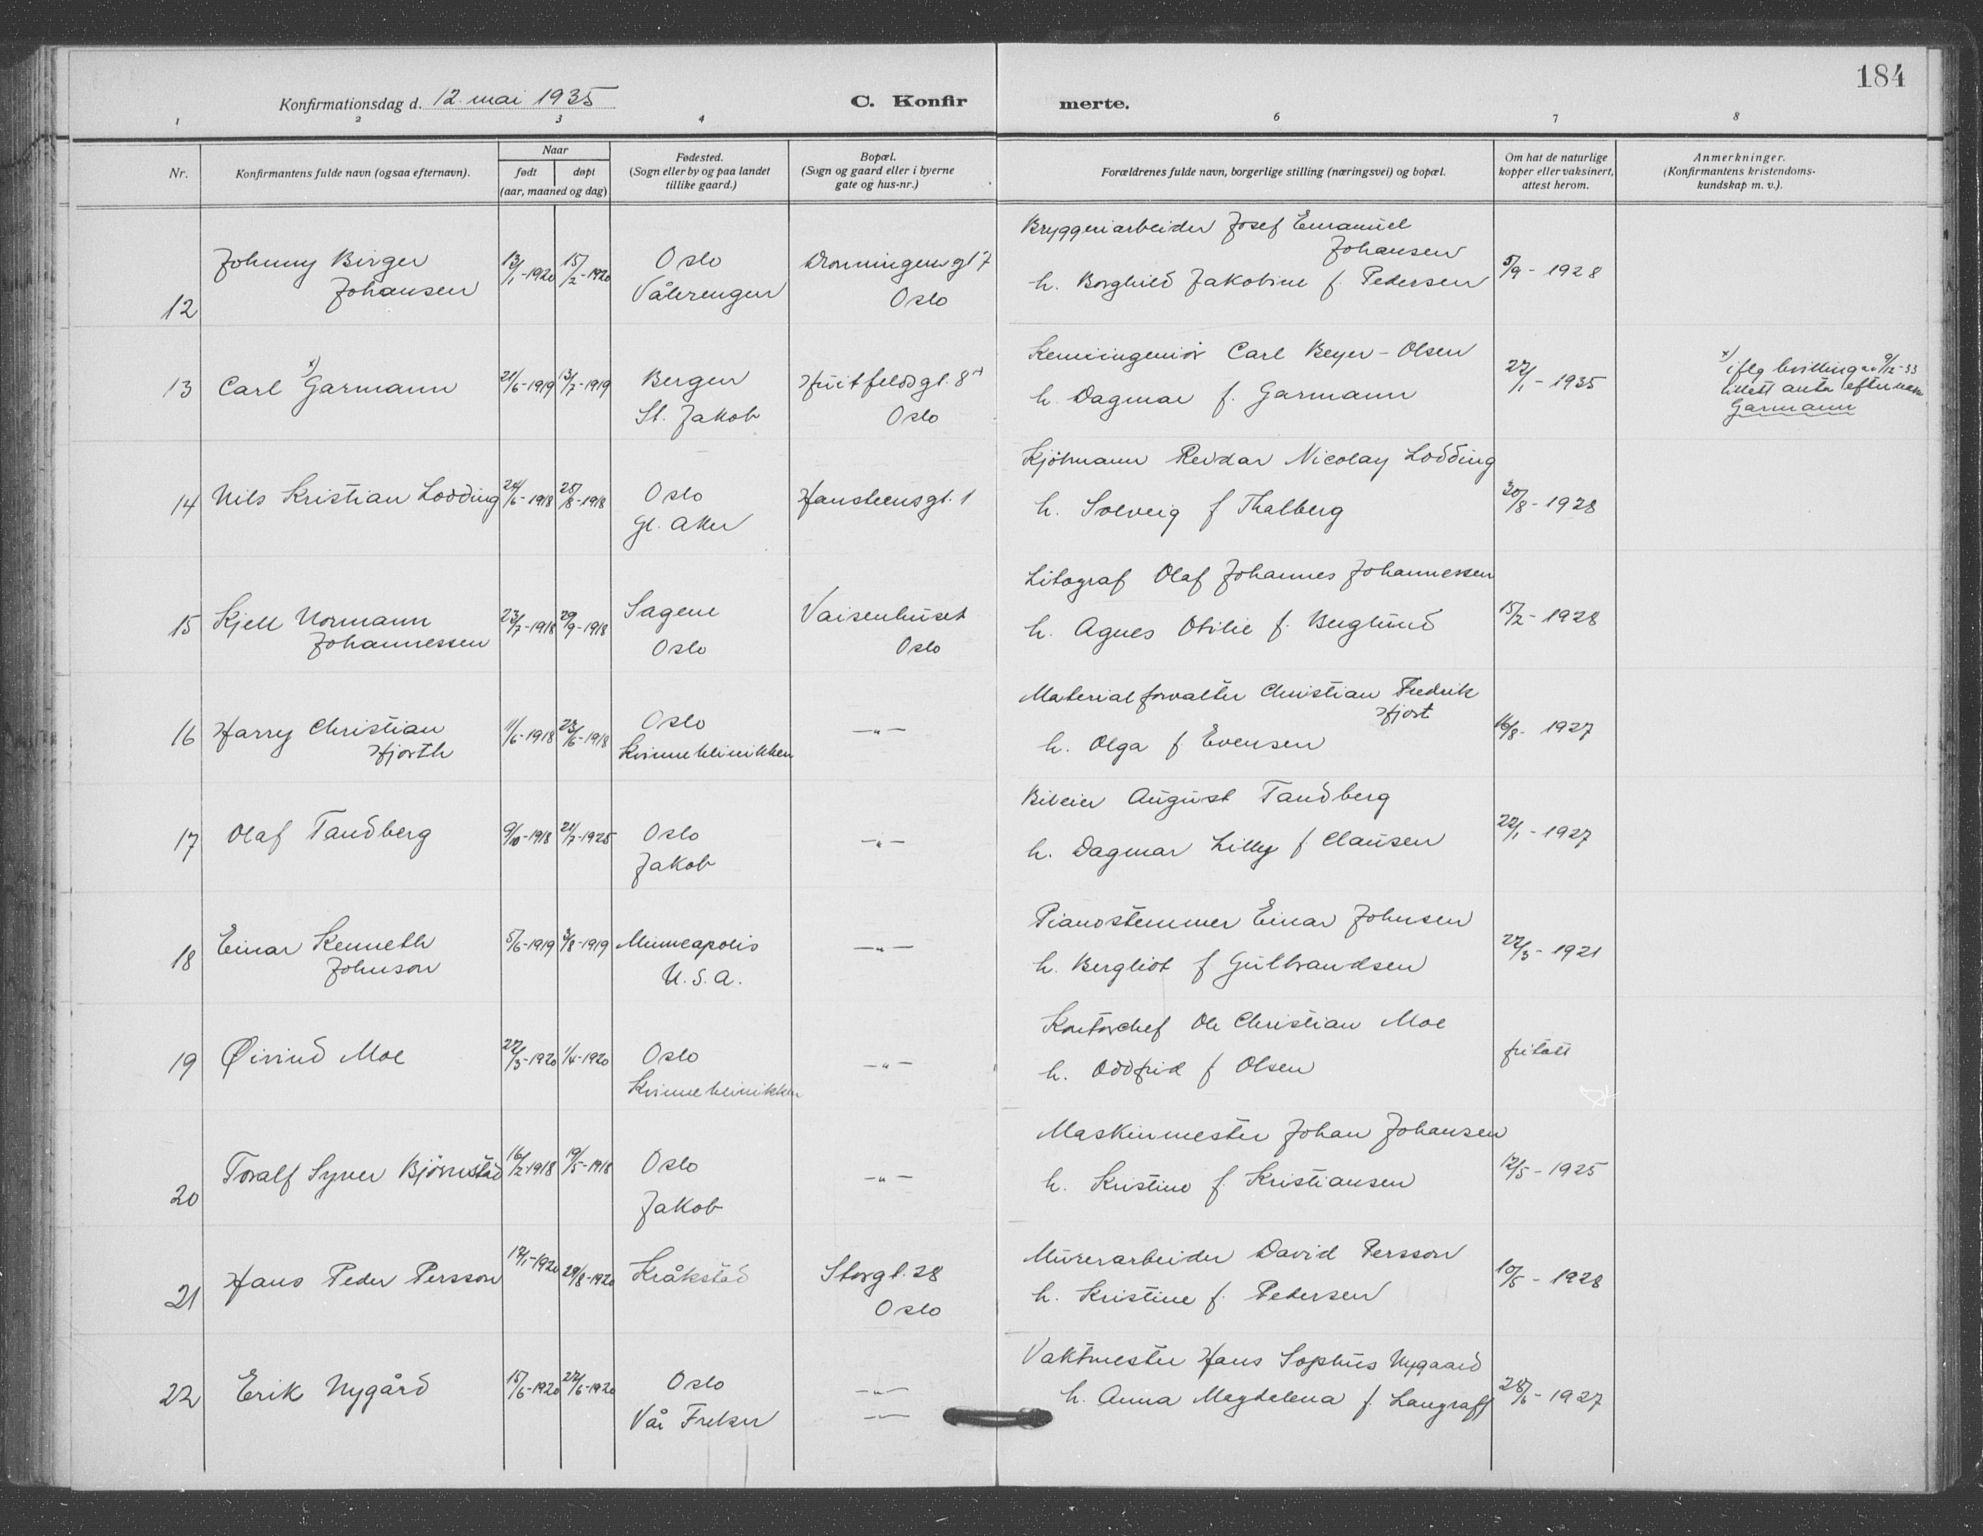 184
Konfirmationsdag d. 12. mai 1935 C. Konfir merte.
1 2 3 4 6 7 8
Nr.
Konfirmantens fulde navn (ogsaa efternavn).
Naar
født døpt
(aar, maaned og dag)
Fødested.
(Sogn eller by og paa landet
tillike gaard.)
Bopæl.
(Sogn og gaard eller i byerne
gate og hus-nr.)
Forældrenes fulde navn, borgerlige stilling (næringsvei) og bopæl.
Om hat de naturlige
kopper eller vaksinert,
attest herom.
Anmerkninger.
(Konfirmantens kristendoms-
kundskap m. v.).
12 Johnny Birger
Johansen
13/1-1920 15/2-1920
Oslo
Vålerengen
Dronningensgt 7
Oslo
Bryggeriarbeider Josef Emanuel
Johansen
h. Borghild Jakobine f. Pedersen
5/9-1928
13 Carl x) Garmann
21/6-1919 13/7-1919
Bergen
St. Jakob
Huitfeldsgt. 8
Oslo
Kemiingeniør Carl Beyer-Olsen
h. Dagmar f. Garmann
22/1-1935
x) iflg bevilling av 9/12-33
tillatt anta efternavn
Garmann
14 Nils Kristian Lodding
24/6-1918 25/8-1918
Oslo
Gl. Aker
Hansteensgt. 1
Kjøbmann Reidar Nicolay Lodding
h. Solveig f Thalberg
30/8-1928
15 Kjell Normann
Johannessen
23/7-1918 29/9-1918
Sagene
Oslo
Vaisenhuset
Oslo
Litograf Olaf Johannes Johannessen
h. Agnes Otilie f. Berglund
15/2-1928
16 Harry Christian
Hjorth
11/6-1918 23/6-1918
Oslo
Kvinneklinikken
-"-
Materialforvalter Christian Fredrik
Hjort
h. Olga f Evensen
16/8-1927
17 Olaf Tandberg
9/10-1918 21/7-1925
Oslo
Jakob
-"-
Bileier August Tandberg
h. Dagmar Lilly f Clausen
22/1-1927
18 Einar Kenneth
Johnson
5/6-1919 3/8-1919
Minneapolis
U.S.A.
-"-
Pianostemmer Einar Johnsen
h. Bergliot f Gulbrandsen
22/3-1921
19 Øivind Moe
22/3-1920 1/4-1920
Oslo
Kvinneklinikken
-"-
Kontorchef Ole Christian Moe
h. Oddfrid f Olsen
fritatt
20 Toralf Syver Bjørnstad
16/2-1918 19/5-1918
Oslo
Jakob
-"-
Maskinmester Johan Johansen
h. Kristine f. Kristiansen
12/5-1925
21 Hans Peder Persson
12/1-1920 29/8-1920
Kråkstad
Storgt. 28
Oslo
Murerarbeider David Persson
h. Kristine f. Pedersen
10/5-1928
22 Erik Nygård
15/6-1920 22/6-1920
Oslo
Vår Frelser
-"-
-"-
Vaktmester Hans Sophus Nygaard
h. Anna Magdelena f. Langraff
28/6-1927